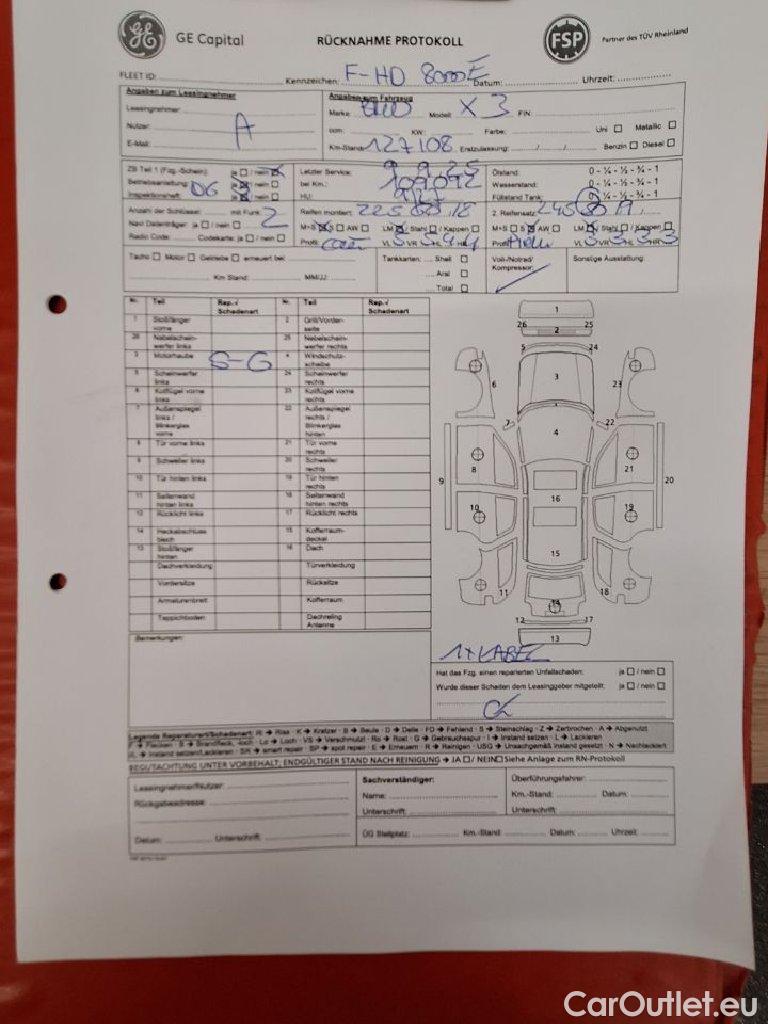 GE Capital RÜCKNAHME PROTOKOLL FSP Partner des TÜV Rheinland
FLEET ID: Kennzeichen: F-HD 8000E Datum: Uhrzeit:
Angaben zum Leasingnehmer Angaben zum Fahrzeug
Leasingnehmer: Marke: Modell: X3 FIN:
Nutzer: A ccm: KW: Farbe: Uni □ Metallic □
E-Mail: Km-Stand: 127108 Erstzulassung: Benzin □ Diesel □
ZB Teil 1 (Fzg.-Schein): ja □ / nein Letzter Service: 9.9.25 Ölstand: 0 - ¼ - ½ - ¾ - 1
Betriebsanleitung: DG bei Km.: 109092 Wasserstand: 0 - ¼ - ½ - ¾ - 1
Inspektionsheft: HU: Füllstand Tank: 0 - ¼ - ½ - ¾ - 1
Anzahl der Schlüssel: mit Funk: 2 Reifen montiert: 225 18 2. Reifensatz: 245
Navi Datenträger: ja □ / nein □ M+S S □ AW □ LM / Stahl □ / Kappen □ M+S □ S AW □ LM / Stahl □ / Kappen □
Radio Code: Codekarte: ja □ / nein □ Profil: VL 5 VR 5 HL 4 HR 4 Profil: VL 3 VR 3 HL 3 HR 3
Tacho □ Motor □ Getriebe □ erneuert bei: Tankkarten: Shell □ Voih/Notrad/ Sonstige Ausstattung:
Aral □ Kompressor:
Km Stand: MM/JJ: Total □
Nr. Teil Rep./ Schadenart Nr. Teil Rep./ Schadenart
1 Stoßfänger vorne 2 Grill/Vorderseite
26 Nebelscheinwerfer links 25 Nebelscheinwerfer rechts
3 Motorhaube S-G 4 Windschutzscheibe
5 Scheinwerfer links 24 Scheinwerfer rechts
6 Kotflügel vorne links 23 Kotflügel vorne rechts
7 Außenspiegel links / Blinkerglas vorne 22 Außenspiegel rechts / Blinkerglas hinten
8 Tür vorne links 21 Tür vorne rechts
9 Schweller links 20 Schweller rechts
10 Tür hinten links 19 Tür hinten rechts
11 Seitenwand hinten links 18 Seitenwand hinten rechts
12 Rücklicht links 17 Rücklicht rechts
14 Heckabschlussblech 15 Kofferraumdeckel
13 Stoßfänger hinten 16 Dach
Dachverkleidung Türverkleidung
Vordersitze Rücksitze
Armaturenbrett Kofferraum
Teppichboden Dachreling Antenne
1
26 2 25
5 24
6 3 23
7 22
4
8 21
9 20
16
10 19
15
11 18
14
12 17
13
Bemerkungen:
1x KABEL
Hat das Fzg. einen reparierten Unfallschaden: ja □ / nein □
Wurde dieser Schaden dem Leasinggeber mitgeteilt: ja □ / nein □
Legende Reparaturart/Schadenart: RI → Riss - K → Kratzer - B → Beule - D → Delle - FD → Fehlend - S → Steinschlag - Z → Zerbrochen - A → Abgenutzt
F → Flecken - B → Brandfleck, -loch - Lo → Loch - VS → Verschmutzt - Ro → Rost - G → Gebrauchsspur - I → Instand setzen - L → Lackieren
IL → Instand setzen/Lackieren - SR → smart repair - SP → spot repair - E → Erneuern - R → Reinigen - USIG → Unsachgemäß instand gesetzt - N → Nachlackiert
BEGUTACHTUNG UNTER VORBEHALT; ENDGÜLTIGER STAND NACH REINIGUNG → JA □ / NEIN □ Siehe Anlage zum RN-Protokoll
Leasingnehmer/Nutzer: Sachverständiger: Überführungsfahrer:
Rückgabeadresse: Name: Km.-Stand: Datum:
Unterschrift: Unterschrift:
Datum: Unterschrift: ÜG Stellplatz: Km.-Stand: Datum: Uhrzeit:
CarOutlet.eu